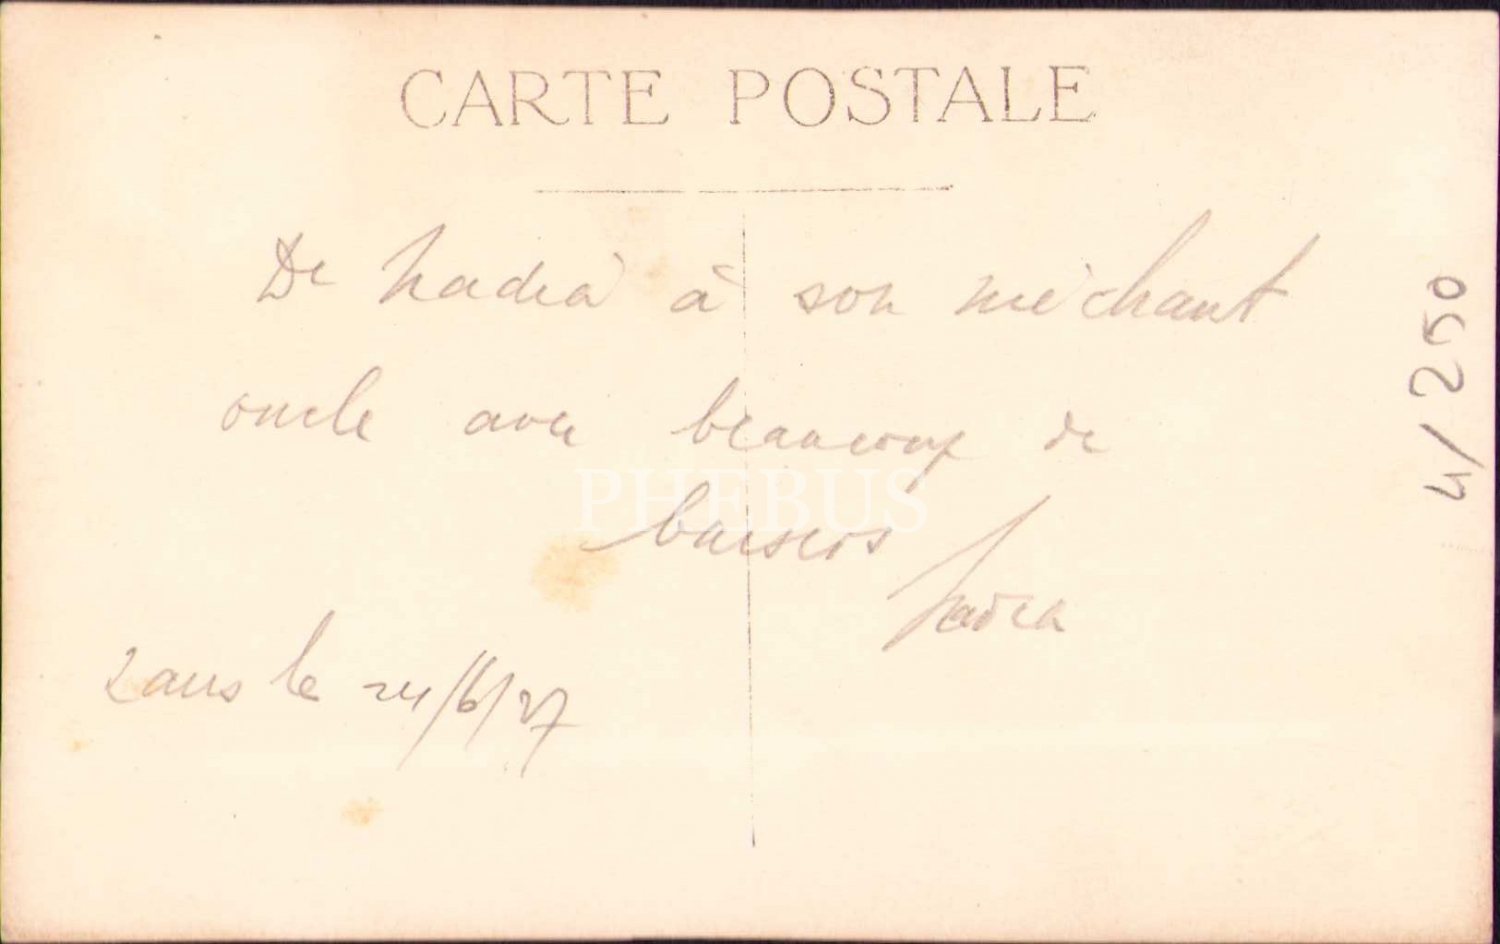 CARTE POSTALE
De Nadia à son méchant
oncle avec beaucoup de
baisers
Nadia
le 24/6/27
4/250
PHEBUS